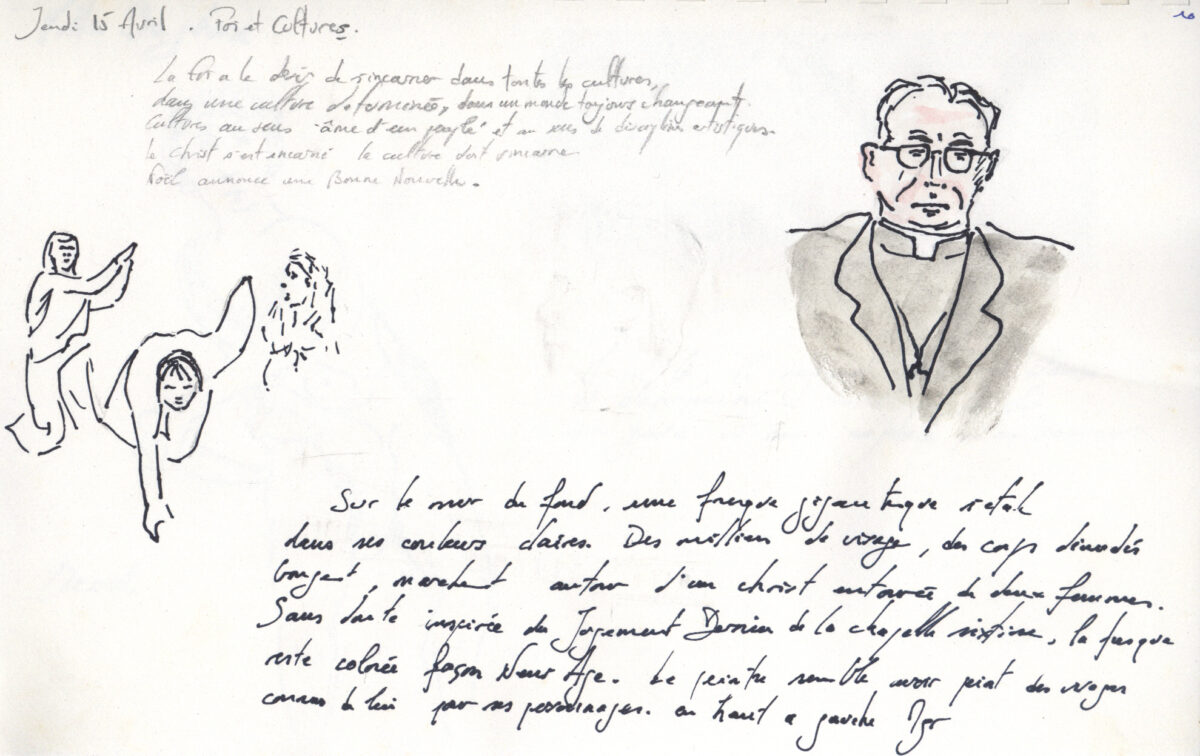 Jeudi 15 Avril . Foi et Cultures.
10
La foi a le désir de s'incarner dans toutes les cultures,
dans une culture déterminée, dans un monde toujours changeant.
Cultures au sens "âme d'un peuple" et au sens de disciplines artistiques.
le Christ s'est incarné la culture doit s'incarner
Noël annonce une Bonne Nouvelle.
Sur le mur du fond, une fresque gigantesque s'étale
dans ses couleurs claires. Des milliers de visage, des corps dénudés
bougent, marchent autour d'un christ entourée de deux femmes.
Sans doute inspirée du Jugement Dernier de la chapelle sixtine, la fresque
reste colorée façon New Age. Le peintre semble avoir peint des visages
connus de lui par ses personnages. en haut a gauche Mgr